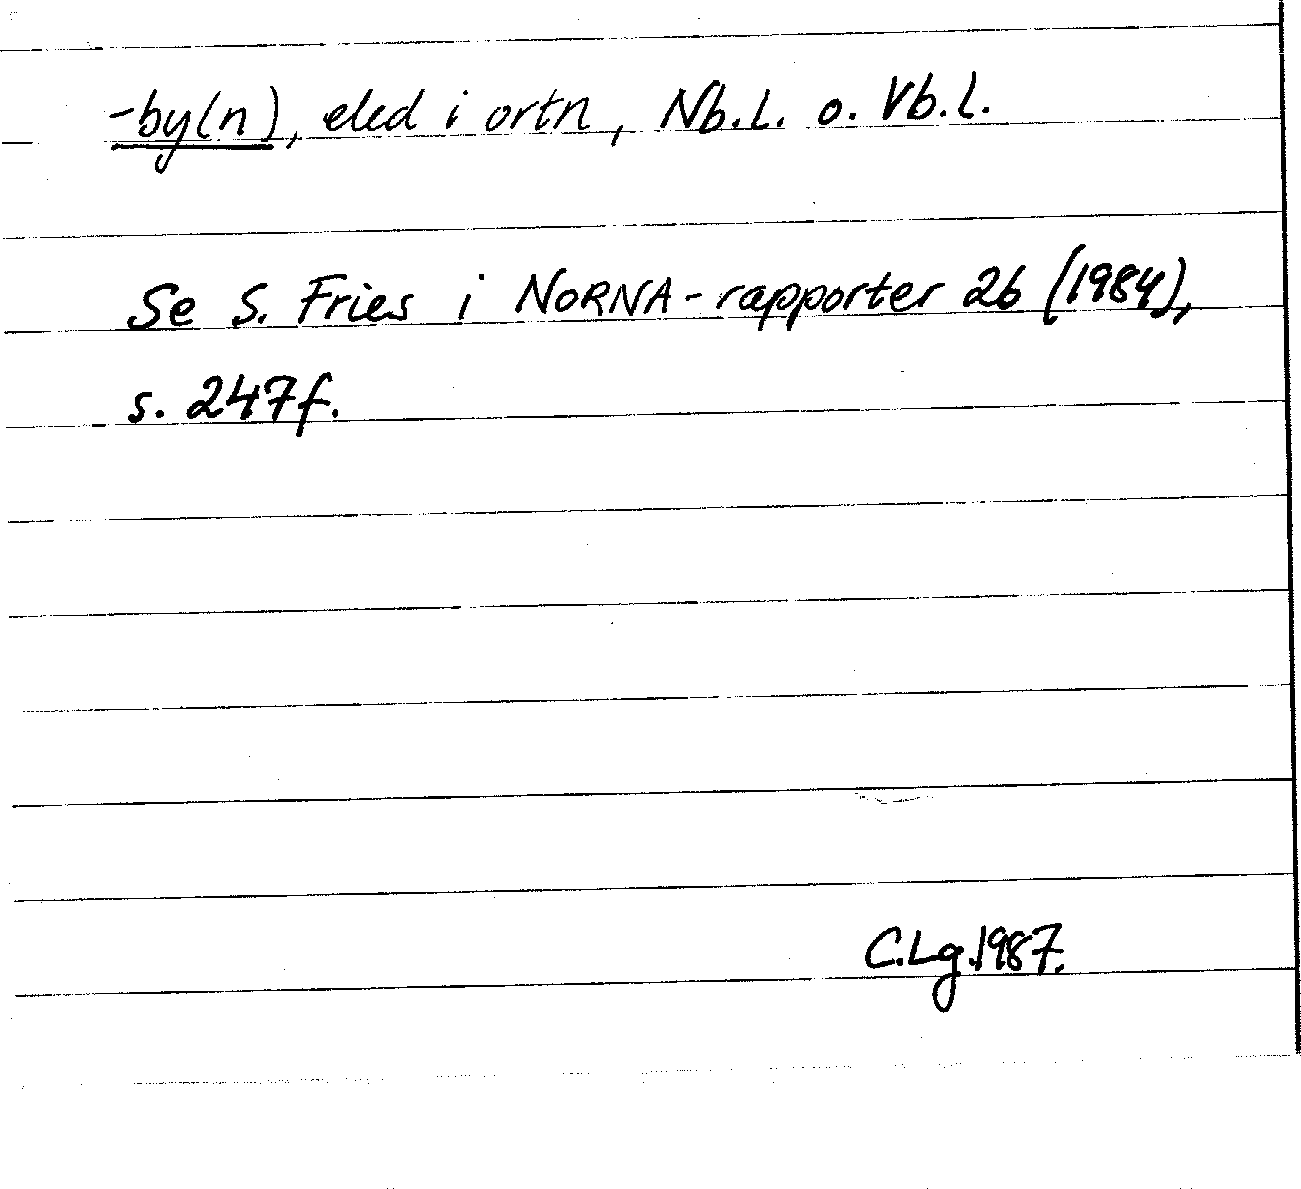 -by(n), eled i ortn, Nb.l. o. Vb.l.
Se S. Fries i NORNA-rapporter 26 (1984),
s. 247f.
C.Lg.1987.